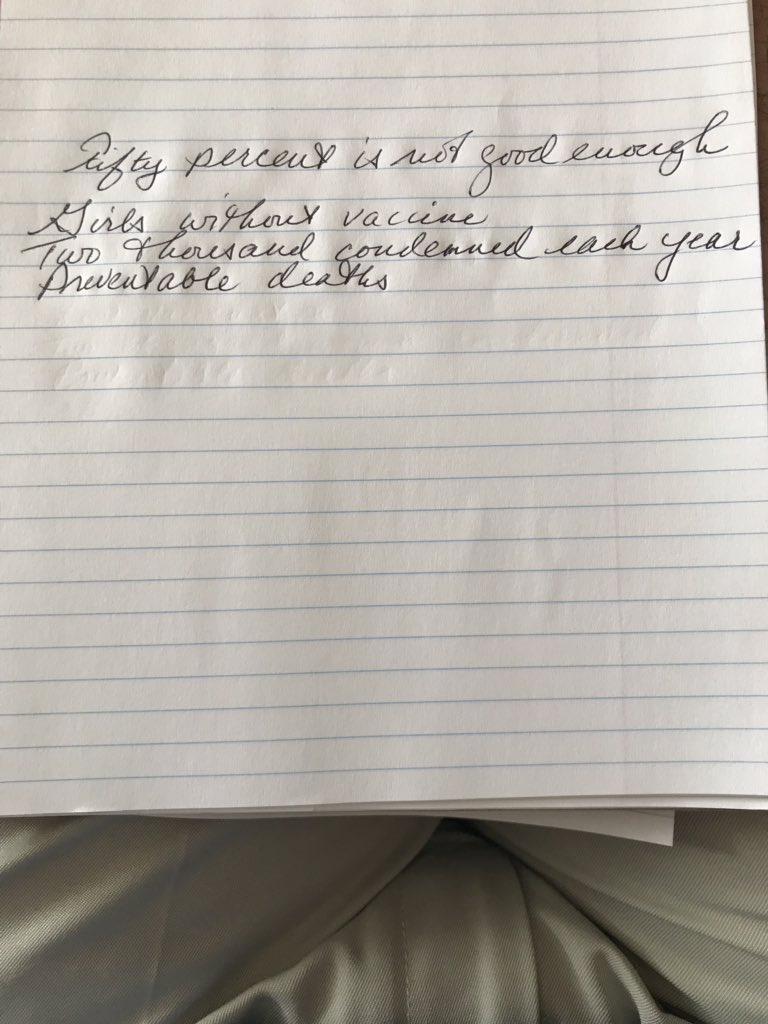 Fifty percent is not good enough
Girls without vaccine
Two thousand condemned each year
Preventable deaths